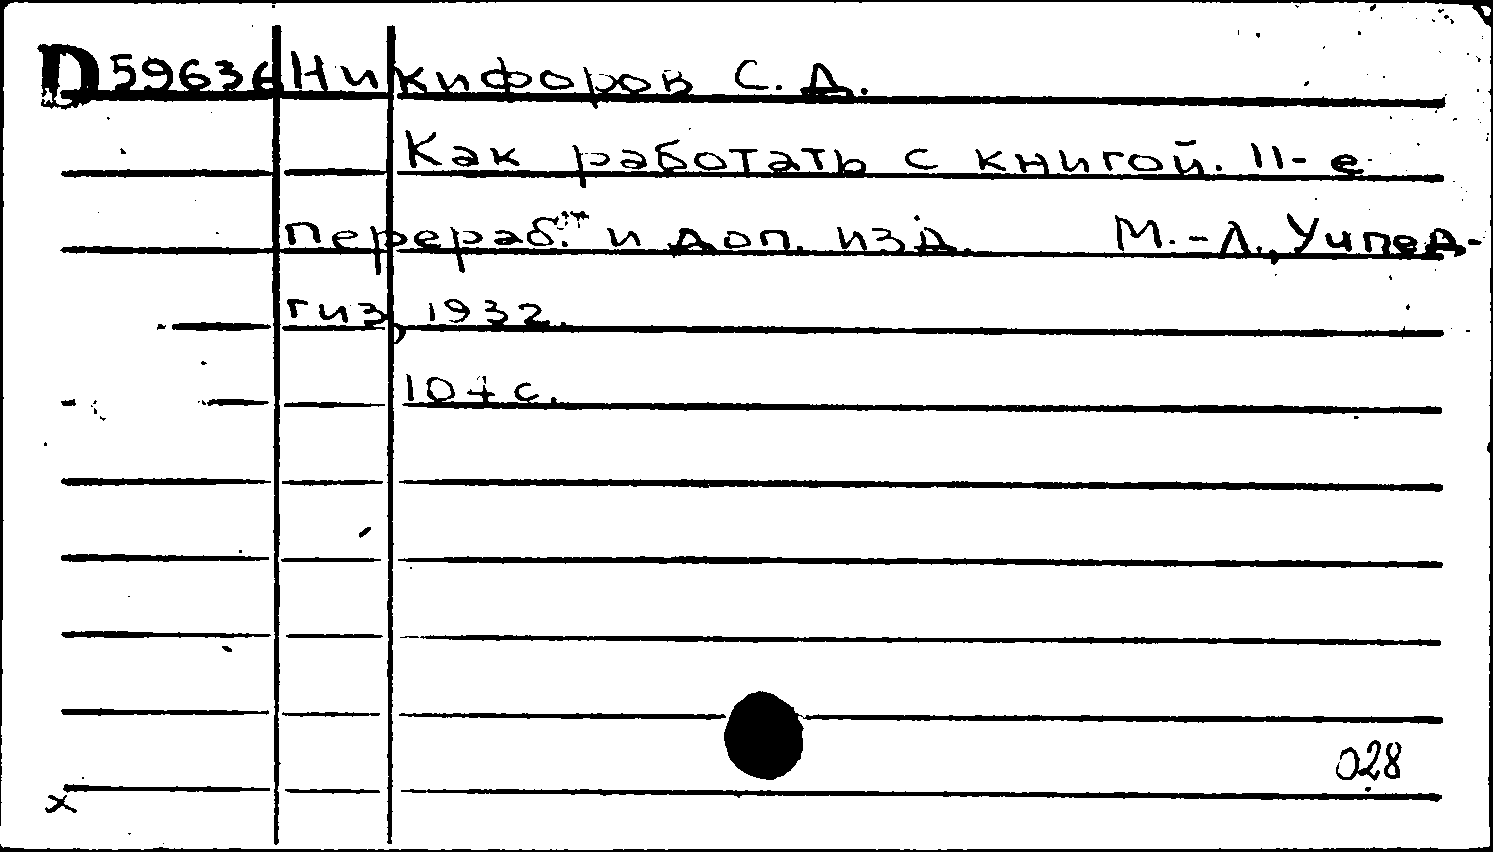 D 59636 Никифоров С. Д.
Как работать с книгой. II-е
перераб. и доп. изд. М.-Л., Учпед-
гиз, 1932.
104 с.
028
x